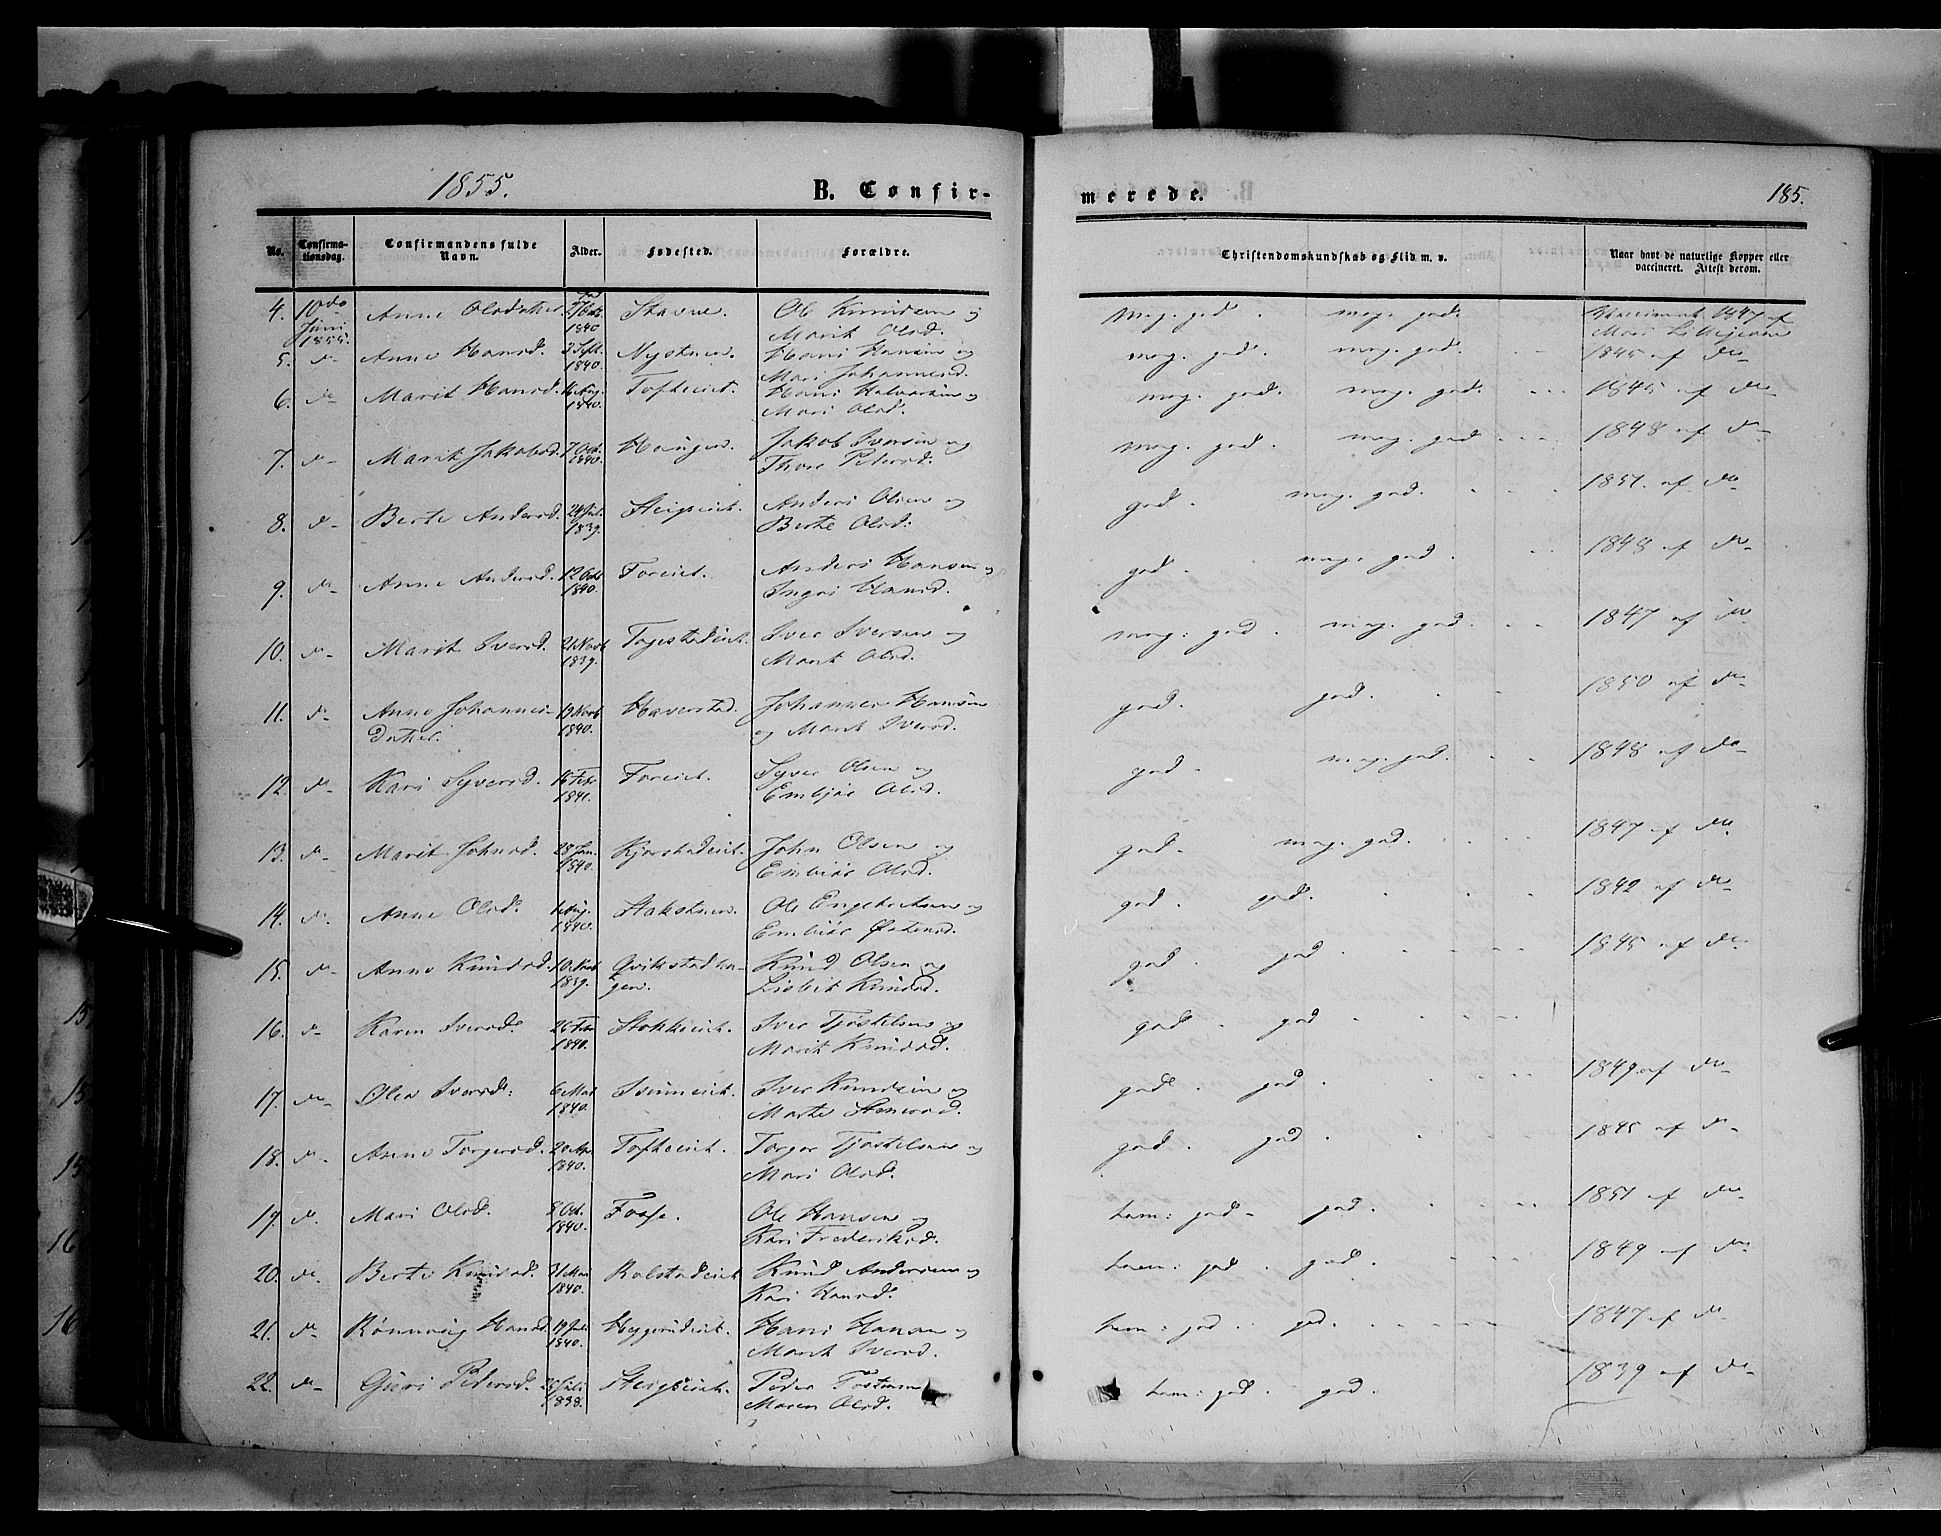 1855. B. Confirmerede. 185.
No. Confirmationsdag. Confirmandens fulde Navn. Alder. Fødested. Forældre. Christendomskundskab og Flid m. v. Naar havt de naturlige Kopper eller vaccineret. Attest derom.
4. 10de Juni 1855. Anne Olsdatter 1840 Stavne. Ole Knudsen og Marit Olsd. meg. god. meg. god. Vaccineret 1847 af Mari
5. do Anne Hansd. 3 Sept. 1840. Nystuen. Hans Hansen og Mari Johannesd. meg. god. meg. god. 1845 af do
6. do Marit Hansd. 16 Aug. 1840. Tofteeiet. Hans Halvorsen og Mari Olsd. meg. god. meg. god. 1845 af do
7. do Marit Jakobsd. 7 Oct. 1840. Haugen. Jakob Iversen og Thore Pedersd. meg. god. meg. god. 1848 af do
8. do Berte Andersd. 24 Juli 1839. Steigeeiet. Anders Olsen og Berte Olsd. god. meg. god. 1851. af do
9. do Anne Andersd. 12 Oct 1840. Foreiet. Anders Hansen og Ingri Hansd. god. meg. god. 1848 af do
10. do Marit Iversd. 21 Novb 1839. Togestadeiet. Iver Iversen og Marit Olsd. meg. god. meg. god. 1847 af do
11. do Anne Johannesdatter. 19 Novb 1840. Haverstad. Johannes Hansen og Marit Iversd. god. god. 1850 af do
12. do Kari Syversd. 16 Febr 1841. Foreiet. Syver Olsen og Embjør Olsd. god. meg. god. 1848 af do
13. do Marit Johnsd. 28 Jan. 1840. Kjorstadeiet. John Olsen og Embjør Olsd. god. meg. god. 1847 af do
14. do Anne Olsd. Aug. 1840. Stakstuen. Ole Engebretsen og Embjør Østensd. god. god. 1842 af do
15. do Anne Knudsd. 10 Novb 1839. Qvikstadhaugen. Knud Olsen og Lisbet Knudsd. god. god. 1845 af do
16. do Karen Iversd. 25 Febr 1840. Stokkeeiet. Iver Tjøstelsen og Marit Knudsd. god. god.
17. do Olea Iversd. 6 Mai 1840. Svinneiet. Iver Knudsen og Marte Stenersd. god. god. 1849. af do
18. do Anne Torgersd. 20 Apr. 1840. Tofteeiet. Torger Tjøstelsen og Mari Olsd. god. god. 1845 af do
19. do Mari Olsd. 8 Oct. 1840. Fosse. Ole Hansen og Kari Frederiksd. tem: god. god. 1851 af do
20. do Berte Knudsd. 31 Mai 1840. Rolstadeiet Knud Andersen og Kari Hansd. tem: god. god. 1849 af do
21. do Rønnaug Hansd. 19 Juli 1840. Heggerudeiet. Hans Hansen og Marit Iversd. tem: god. god. 1847 af do
22. do Guri Pedersd. Juli 1838. Steigeeiet. Peder Tostensen Maren Olsd. tem: god. god. 1839 af do